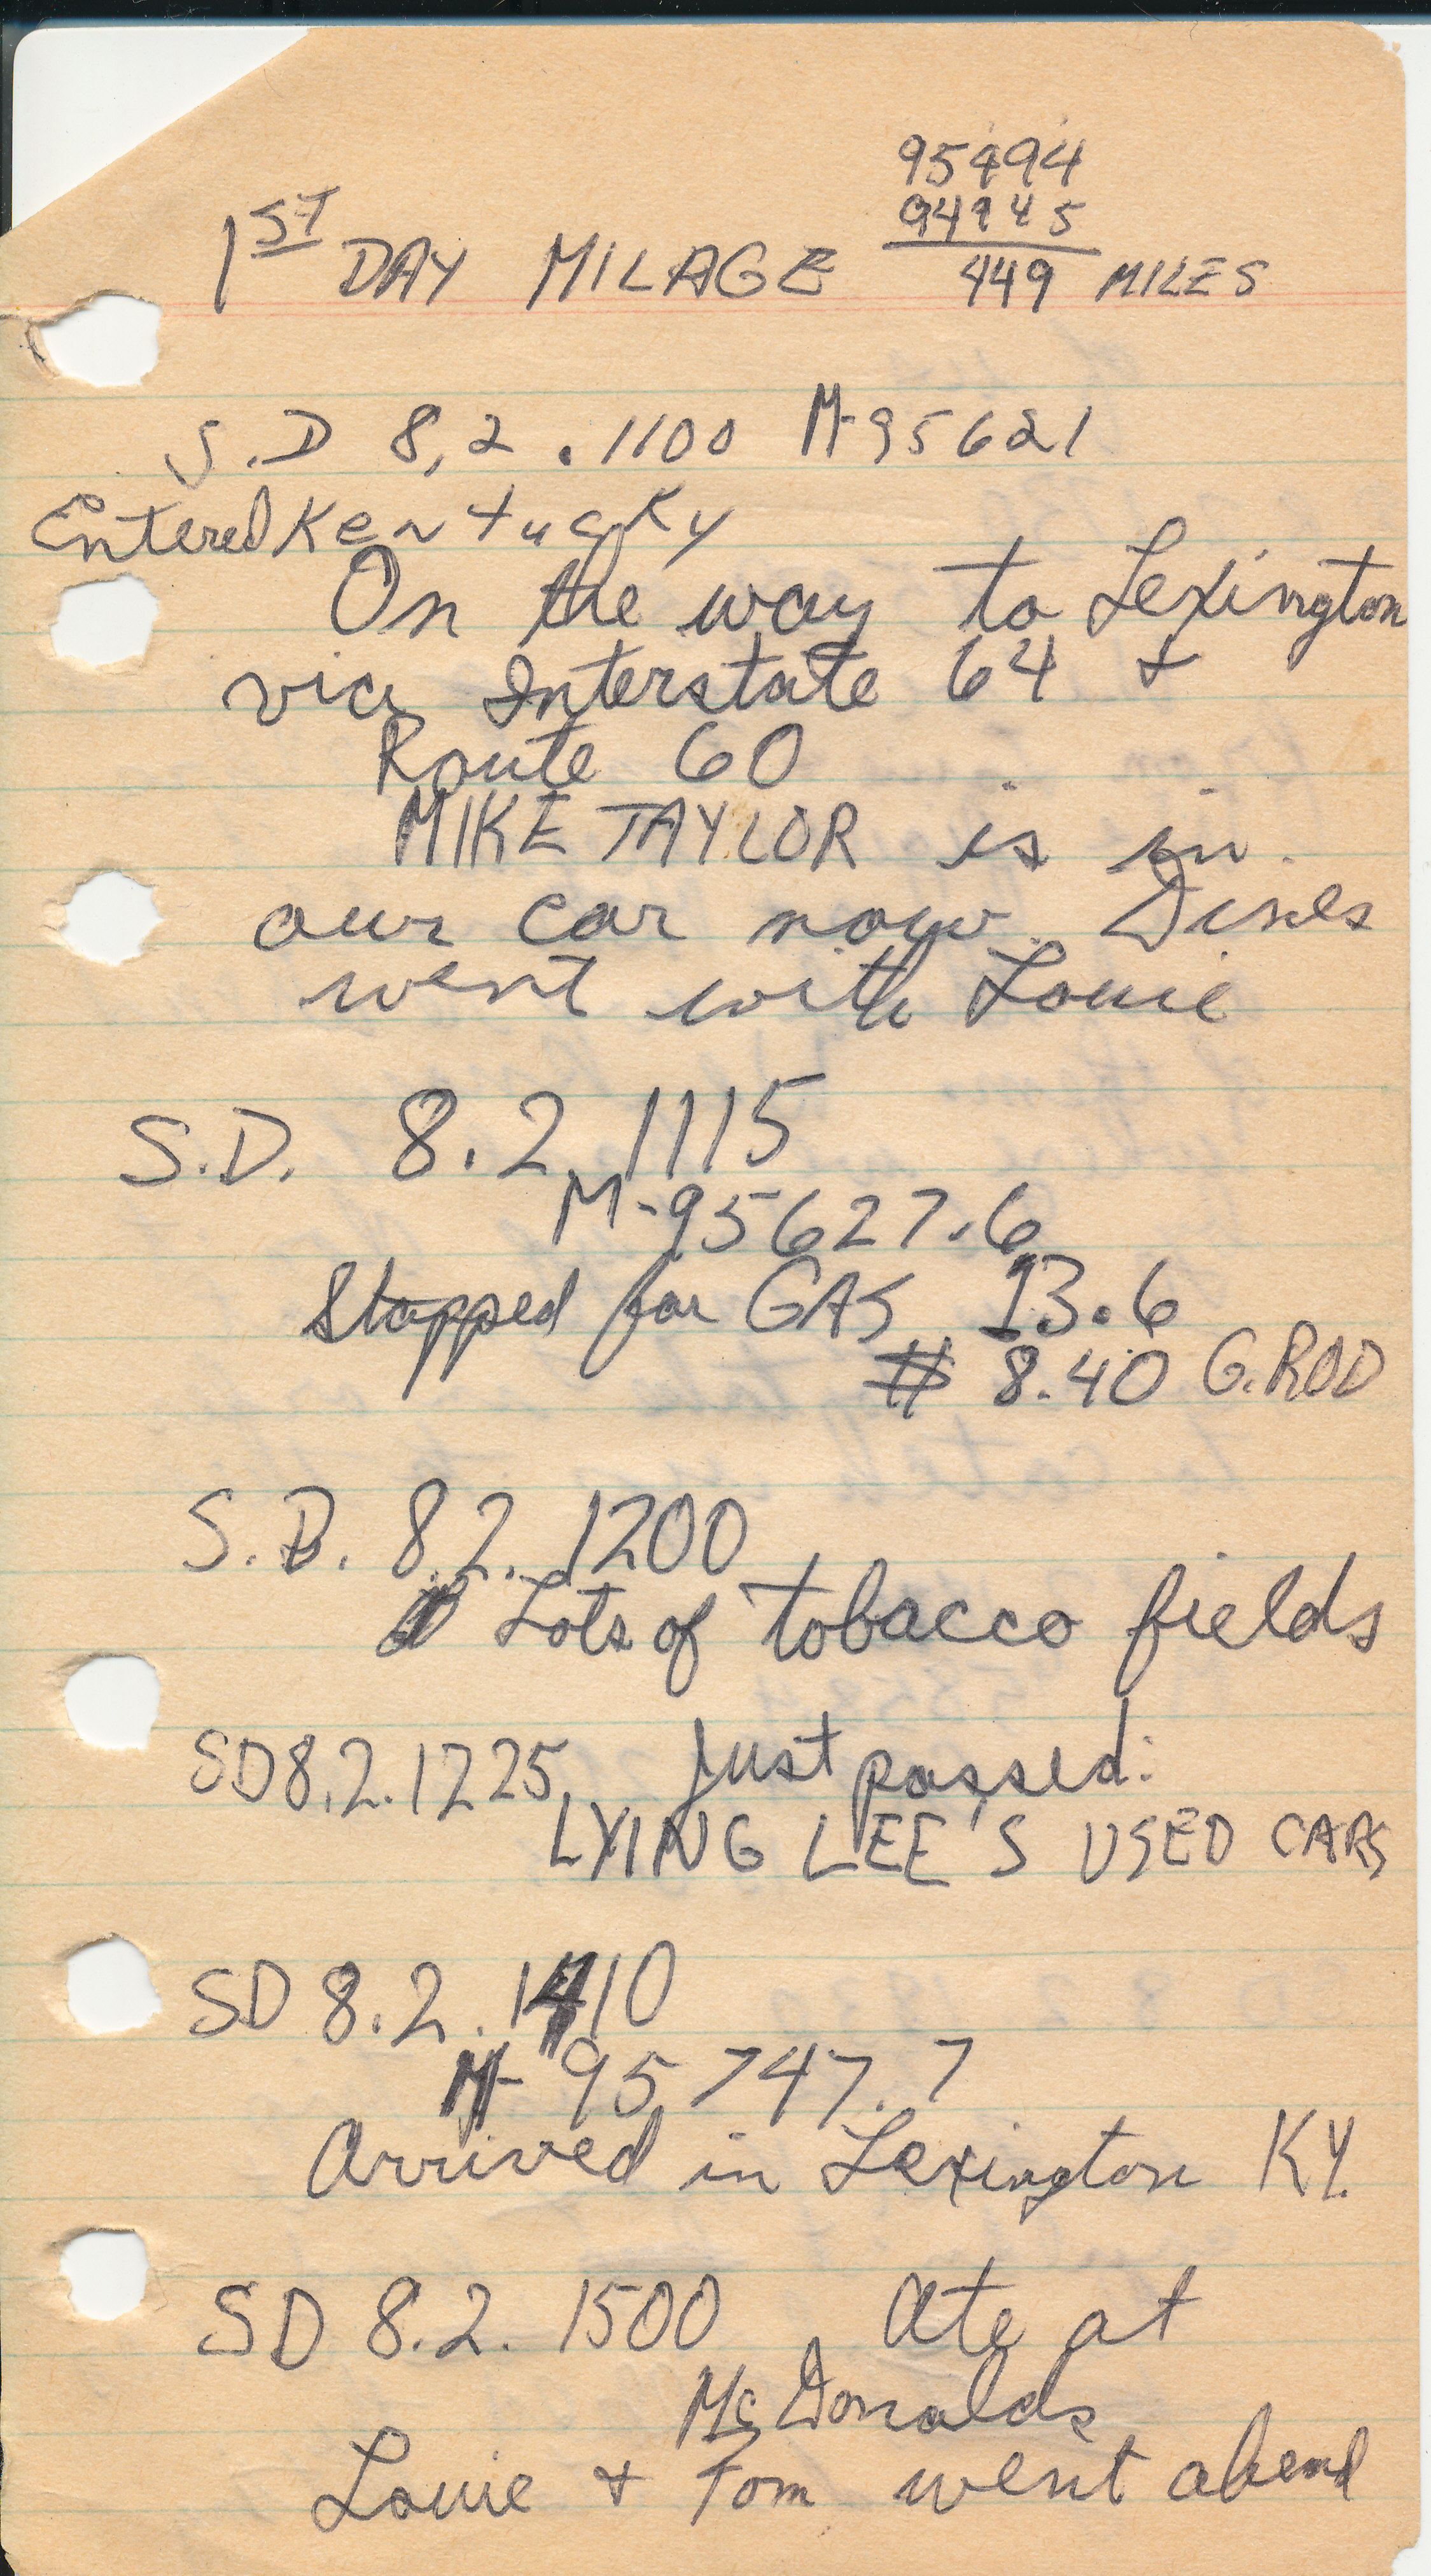 95494
94945
1ST DAY MILAGE 449 MILES
S.D 8,2.1100 M-95621
Entered Kentucky
On the way to Lexington
via Interstate 64 +
Route 60
MIKE TAYLOR is in
our car now. Dines
went with Louie
S.D. 8.2.1115
M-95627.6
Stopped for GAS 13.6
$ 8.40 G.ROD
S.D. 8.2.1200
Lots of tobacco fields
SD 8.2.1225 Just passed:
LYING LEE'S USED CARS
SD 8.2.1410
M-95747.7
Arrived in Lexington KY.
SD 8.2.1500 Ate at
McDonalds
Louie + Tom went ahead